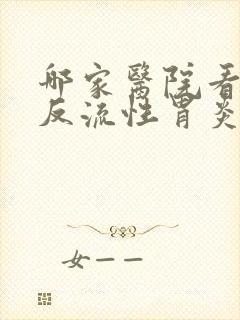 那家醫院看
反流性胃炎
女一一